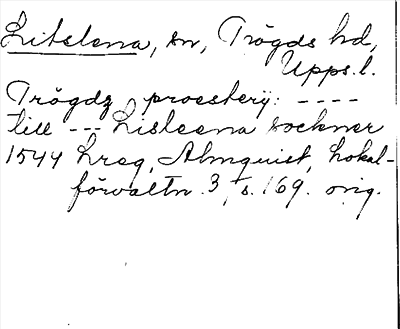 Litslena, sn, Trögds hd,
Upps. l.
Trögdz proestery: ----
till --- Lisleena sockner
1544 Lreg, Almquist, Lokal-
förvaltn. 3, s. 169. orig.